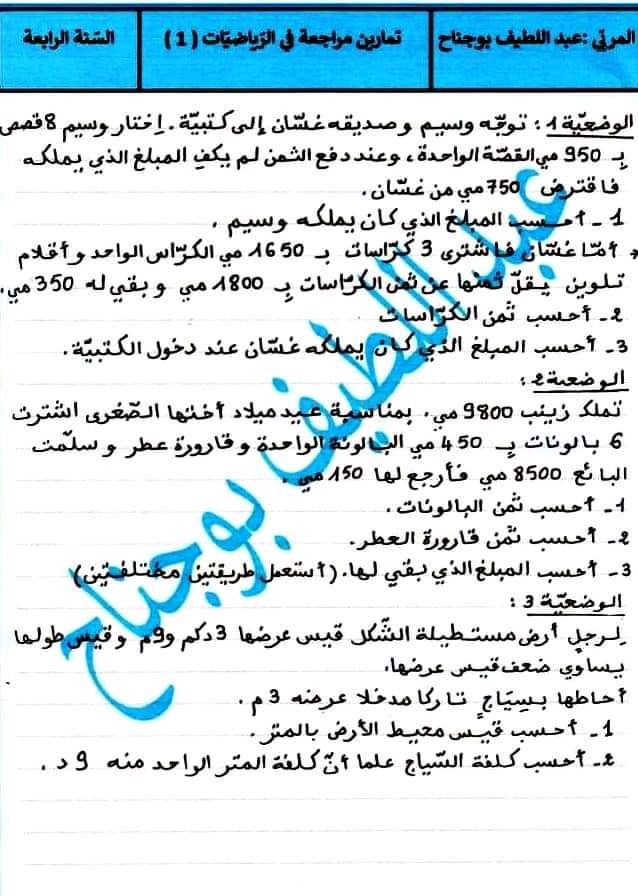 المربي :عبد اللطيف بوجناح
تمارين مراجعة في الرياضيّات ( 1 )
السّنة الرابعة
الوضعيّة 1 : توجّه وسيم وصديقه غسّان إلى كتبيّة. اِختار وسيم 8 قصص
بِـ 950 مي القصّة الواحدة، وعند دفع الثمن لم يكفِ المبلغ الذي يملكه
فاقترض 750 مي من غسّان.
1 - أحسب المبلغ الذي كان يملكه وسيم .
* أمّا غسّان فاشترى 3 كرّاسات بـ 1650 مي الكرّاس الواحد وأقلام
تلوين يقلّ ثمنها عن ثمن الكرّاسات بِـ 1800 مي وبقي له 350 مي.
2- أحسب ثمن الكرّاسات
3- أحسب المبلغ الذي كان يملكه غسّان عند دخول الكتبيّة.
الوضعية 2 :
تملك زينب 9800 مي. بمناسبة عيد ميلاد أختها الصّغرى اشترت
6 بالونات بِـ 450 مي البالونة الواحدة وقارورة عطر وسلّمت
البائع 8500 مي فأرجع لها 150 مي .
1- أحسب ثمن البالونات.
2- أحسب ثمن قارورة العطر.
3- أحسب المبلغ الذي بقي لها. (أستعمل طريقتين مختلفتين)
الوضعيّة 3 :
لرجلٍ أرض مستطيلة الشّكل قيس عرضها 3 دكم و9م وقيس طولها
يساوي ضعف قيس عرضها.
أحاطها بسِيَاجٍ تاركا مدخلا عرضه 3 م .
1 - أحسب قيس محيط الأرض بالمتر.
2- أحسب كلفة السّياج علما أنّ كلفة المتر الواحد منه 9 د .
عبد اللطيف بوجناح